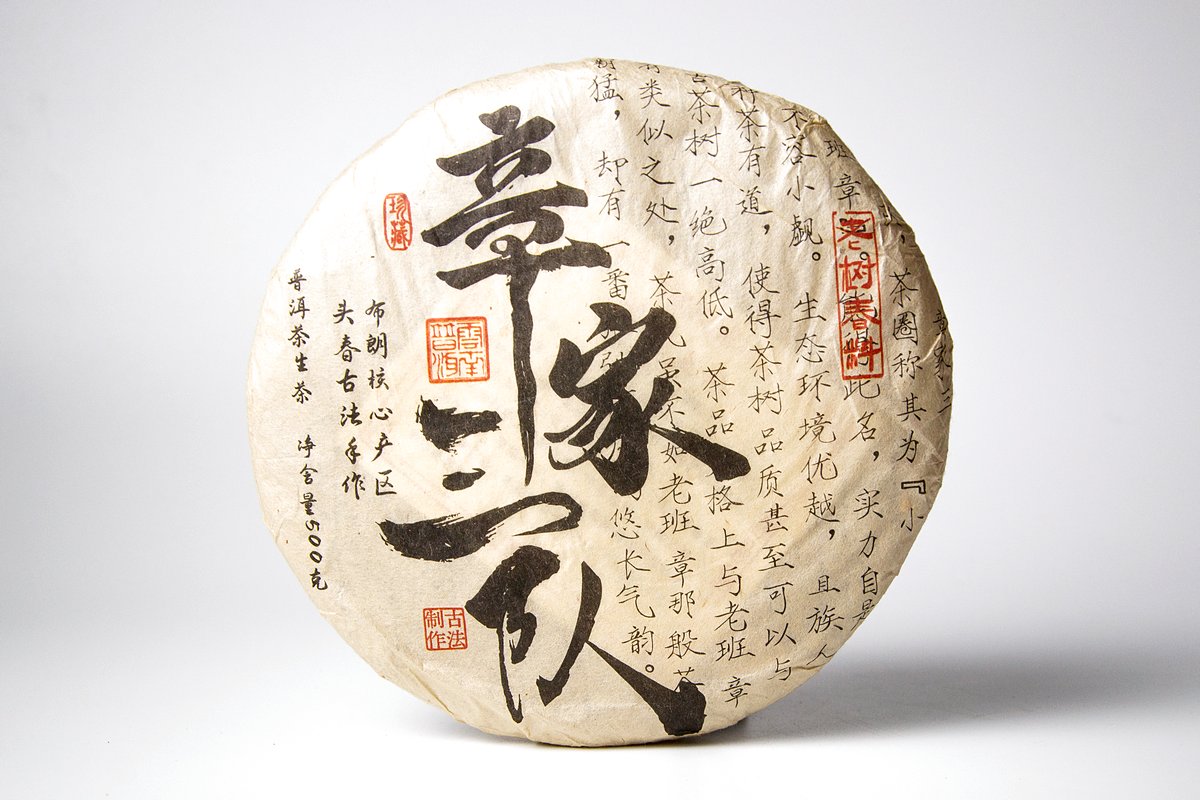 章家三
，茶圈称其为『小
班章 得此名，实力自是
不容小觑。生态环境优越，且族人
种茶有道，使得茶树品质甚至可以与
古茶树一绝高低。茶品 格上与老班章
有类似之处，茶 虽不如老班章那般茶
猛，却有一番 悠长气韵。
老树春料
章家三队
珍藏
云南普洱
古法制作
布朗核心产区
头春古法手作
普洱茶生茶 净含量500克